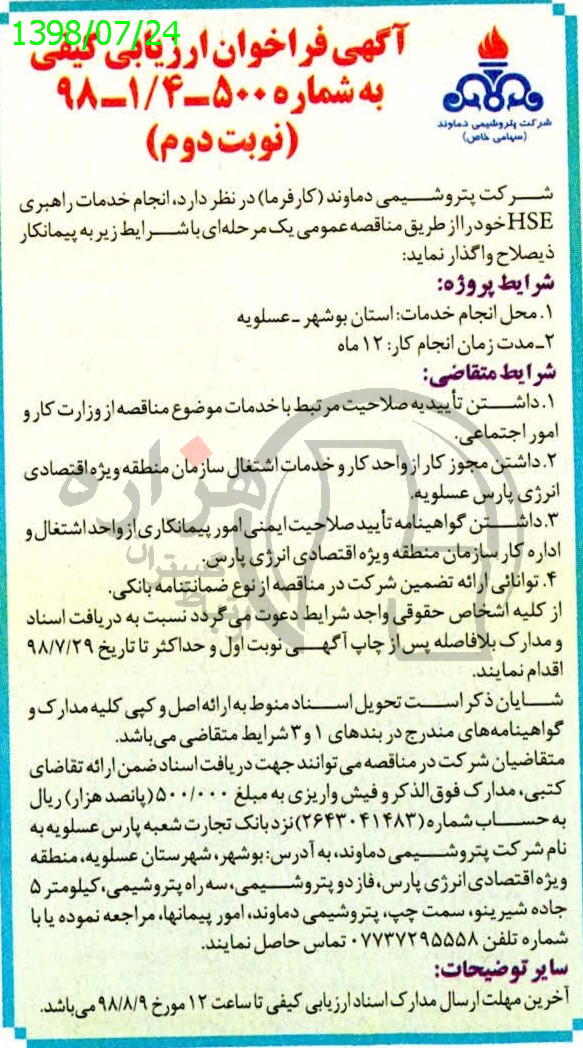 1398/07/24
آگهی فراخوان ارزیابی کیفی
به شماره ۵۰۰ـ۱/۴ـ۹۸
(نوبت دوم)
شرکت پتروشیمی دماوند
(سهامی خاص)
شرکت پتروشیمی دماوند (کارفرما) در نظر دارد، انجام خدمات راهبری
HSE خود را از طریق مناقصه عمومی یک مرحله‌ای با شرایط زیر به پیمانکار
ذیصلاح واگذار نماید:
شرایط پروژه:
۱. محل انجام خدمات: استان بوشهر ـ عسلویه
۲ـ مدت زمان انجام کار: ۱۲ ماه
شرایط متقاضی:
۱. داشتن تأییدیه صلاحیت مرتبط با خدمات موضوع مناقصه از وزارت کار و
امور اجتماعی.
۲. داشتن مجوز کار از واحد کار و خدمات اشتغال سازمان منطقه ویژه اقتصادی
انرژی پارس عسلویه.
۳. داشتن گواهینامه تأیید صلاحیت ایمنی امور پیمانکاری از واحد اشتغال و
اداره کار سازمان منطقه ویژه اقتصادی انرژی پارس.
۴. توانائی ارائه تضمین شرکت در مناقصه از نوع ضمانتنامه بانکی.
از کلیه اشخاص حقوقی واجد شرایط دعوت می‌گردد نسبت به دریافت اسناد
و مدارک بلافاصله پس از چاپ آگهی نوبت اول و حداکثر تا تاریخ ۹۸/۷/۲۹
اقدام نمایند.
شایان ذکر است تحویل اسناد منوط به ارائه اصل و کپی کلیه مدارک و
گواهینامه‌های مندرج در بندهای ۱ و ۳ شرایط متقاضی می‌باشد.
متقاضیان شرکت در مناقصه می‌توانند جهت دریافت اسناد ضمن ارائه تقاضای
کتبی، مدارک فوق‌الذکر و فیش واریزی به مبلغ ۵۰۰/۰۰۰ (پانصد هزار) ریال
به حساب شماره (۲۶۴۳۰۴۱۴۸۳) نزد بانک تجارت شعبه پارس عسلویه به
نام شرکت پتروشیمی دماوند، به آدرس: بوشهر، شهرستان عسلویه، منطقه
ویژه اقتصادی انرژی پارس، فاز دو پتروشیمی، سه راه پتروشیمی، کیلومتر ۵
جاده شیرینو، سمت چپ، پتروشیمی دماوند، امور پیمانها، مراجعه نموده یا با
شماره تلفن ۰۷۷۳۷۲۹۵۵۵۸ تماس حاصل نمایند.
سایر توضیحات:
آخرین مهلت ارسال مدارک اسناد ارزیابی کیفی تا ساعت ۱۲ مورخ ۹۸/۸/۹ می‌باشد.
هزاره